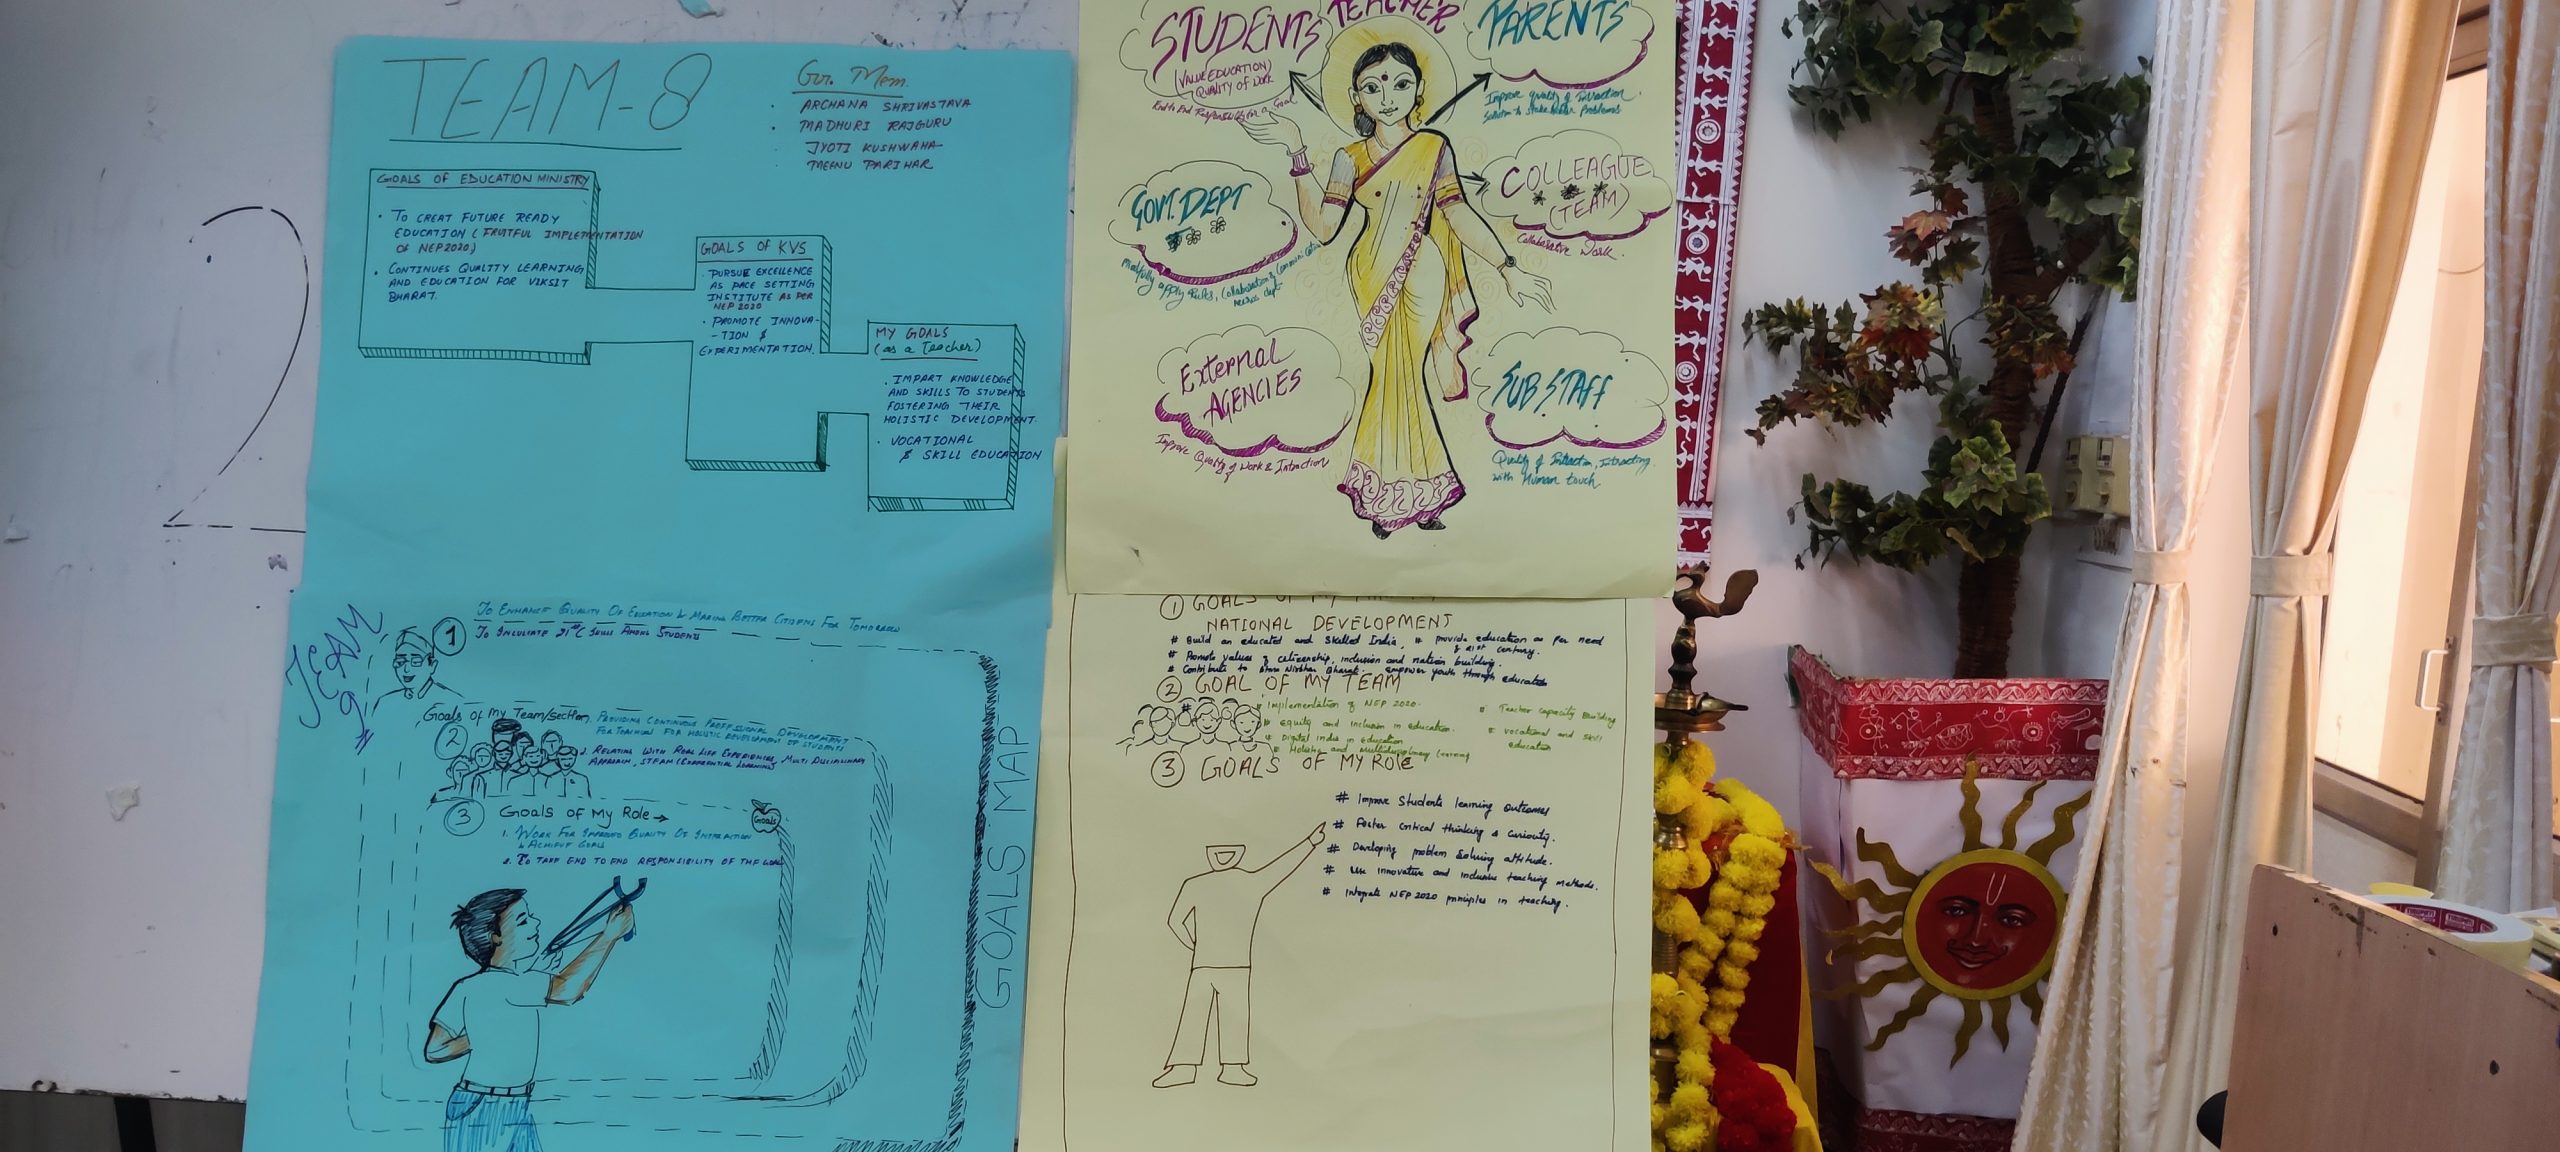 2
TEAM-8
Gr. Mem.
ARCHANA SHRIVASTAVA
MADHURI RAJGURU
JYOTI KUSHWAHA
MEENU PARIHAR
GOALS OF EDUCATION MINISTRY
TO CREAT FUTURE READY
EDUCATION (FRUITFUL IMPLEMENTATION
OF NEP2020)
CONTINUES QUALITY LEARNING
AND EDUCATION FOR VIKSIT
BHARAT.
GOALS OF KVS
PURSUE EXCELLENCE
AS PACE SETTING
INSTITUTE AS PER
NEP 2020
PROMOTE INNOVA-
-TION &
EXPERIMENTATION.
MY GOALS
(as a Teacher)
IMPART KNOWLEDGE
AND SKILLS TO STUDENTS
FOSTERING THEIR
HOLISTIC DEVELOPMENT.
VOCATIONAL
& SKILL EDUCATION
TEACHER
STUDENTS
(VALUE EDUCATION)
QUALITY OF WORK
End to End Responsibility for a Goal
PARENTS
Improve quality of Intraction
Solution to Stakeholder Problems
GOVT. DEPT
apply Rules, Collaboration & Communication
COLLEAGUE
(TEAM)
Collaborative Work.
External
AGENCIES
Improve Quality of Work & Intraction
SUB STAFF
Quality of Intraction, Intracting
with Human touch
TEAM
9
1
TO ENHANCE QUALITY OF EDUCATION & MAKING BETTER CITIZENS FOR TOMORROW
TO INCULCATE 21st C SKILLS AMONG STUDENTS
Goals of My Team/section.
PROVIDING CONTINUOUS PROFESSIONAL DEVELOPMENT
FOR TEACHERS FOR HOLISTIC DEVELOPMENT OF STUDENTS
2
2. RELATING WITH REAL LIFE EXPERIENCES, MULTI DISCIPLINARY
APPROACH, STEAM (EXPERIENTIAL LEARNING)
3 Goals of My Role →
Goals
1. WORK FOR IMPROVED QUALITY OF INTERACTION
& ACHIEVE GOALS
2. TO TAKE END TO END RESPONSIBILITY OF THE GOAL
GOALS MAP
1 GOALS OF MY
NATIONAL DEVELOPMENT
# Build an educated and skilled India, # provide education as per need
of 21st century.
# Promote values of citizenship, inclusion and nation building.
# Contribute to Atma Nirbhar Bharat. empower youth through education
2 GOAL OF MY TEAM
# Implementation of NEP 2020.
# Equity and inclusion in education.
# Digital India in education
# Holistic and Multidisciplinary learning
# Teacher Capacity Building
# Vocational and skill
education
3 GOALS OF MY ROLE
# Improve Students learning outcomes
# Foster critical thinking & curiosity.
# Developing problem solving attitude.
# Use innovative and inclusive teaching methods.
# Integrate NEP 2020 principles in teaching.